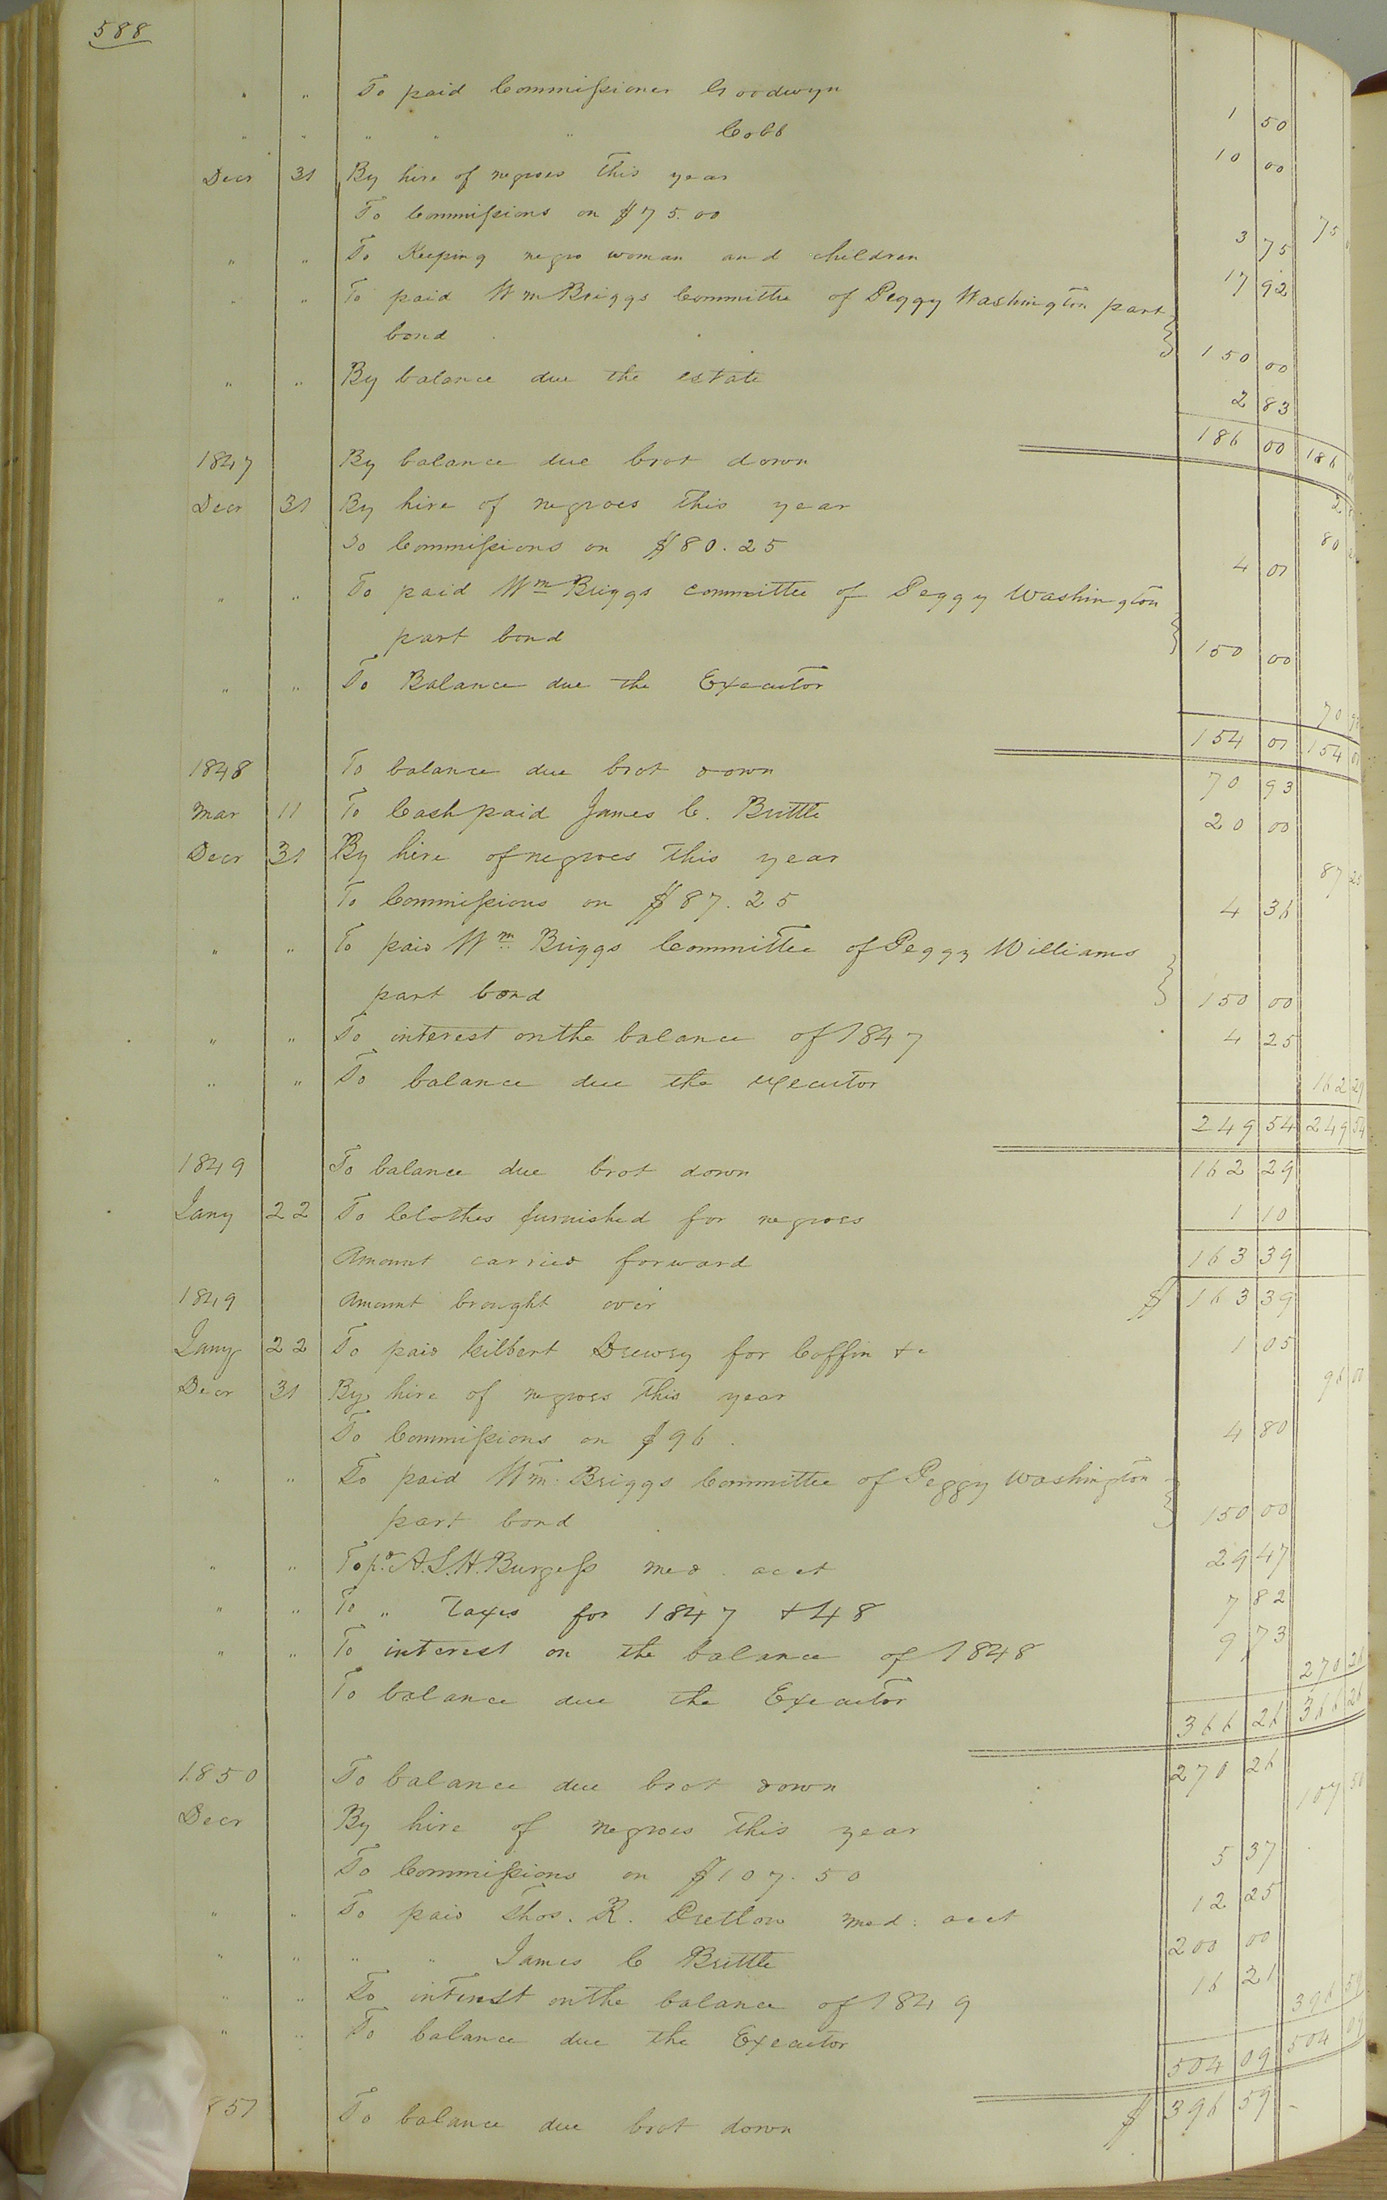 588
" " To paid Commissioner Goodwyn 1 50
" " " " " Cobb 10 00
Decr 31 By hire of negroes this year 75
To Commissions on $75.00 3 75
" " To Keeping negro woman and children 17 92
" " To paid Wm Briggs Committee of Peggy Washington part
bond 150 00
" " By balance due the estate 2 83
186 00 186
1847 By balance due brot down 2
Decr 31 By hire of negroes this year 80
To Commissions on $80.25 4 01
" " To paid Wm Briggs committee of Peggy Washington
part bond 150 00
" " To Balance due the Executor 70
154 01 154 01
1848 To balance due brot down 70 93
Mar 11 To Cash paid James C. Brittle 20 00
Decr 31 By hire of negroes this year 87 25
To Commissions on $87.25 4 36
" " To paid Wm Briggs Committee of Peggy Williams
part bond 150 00
" " To interest on the balance of 1847 4 25
" " To balance due the executor 162 29
249 54 249 54
1849 To balance due brot down 162 29
Jany 22 To Clothes furnished for negroes 1 10
Amount carried forward 163 39
1849 Amount brought over $ 163 39
Jany 22 To paid Gilbert Drewry for Coffin &c 1 05
Decr 31 By hire of negroes this year 96 00
To Commissions on $96. 4 80
" " To paid Wm: Briggs Committee of Peggy Washington
part bond 150 00
" " To pd. A.S.H. Burgess med. acct 29 47
" " To " Taxes for 1847 & 48 7 82
" " To interest on the balance of 1848 9 73
To balance due the Executor 270 26
366 26 366 26
1850 To balance due brot down 270 26
Decr By hire of negroes this year 107 50
To Commissions on $107.50 5 37
" " To paid Thos. R. Pretlow med: acct 12 25
" " " " James C Brittle 200 00
" " To interest on the balance of 1849 16 21
" " To balance due the Executor 396 59
504 09 504 09
851 To balance due brot down $ 396 59 -